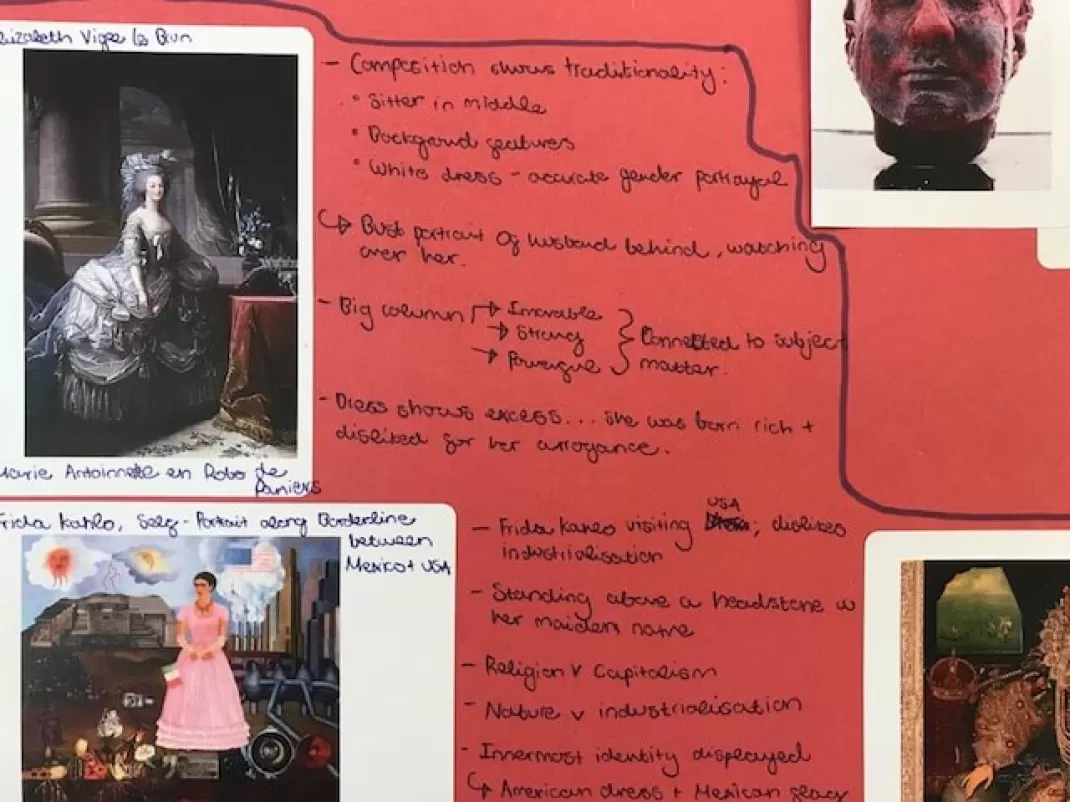 Elizabeth Vigee le Brun
- Composition shows traditionality:
° Sitter in middle
° Background features
° White dress - accurate gender portrayal
↳ Bust portrait of husband behind, watching
over her.
- Big column → Imovable
→ Strong
→ Powerful
} Connected to subject
matter.
- Dress shows excess... she was born rich +
disliked for her arrogance.
Marie Antoinette en Robe de
Paniers
Frida Kahlo, Self-Portrait along Borderline
between
Mexico + USA
- Frida Kahlo visiting USA; dislikes
industrialisation
- Standing above a headstone w
her maiden name
- Religion v Capitalism
- Nature v industrialisation
- Innermost identity displayed
↳ American dress + Mexican flag